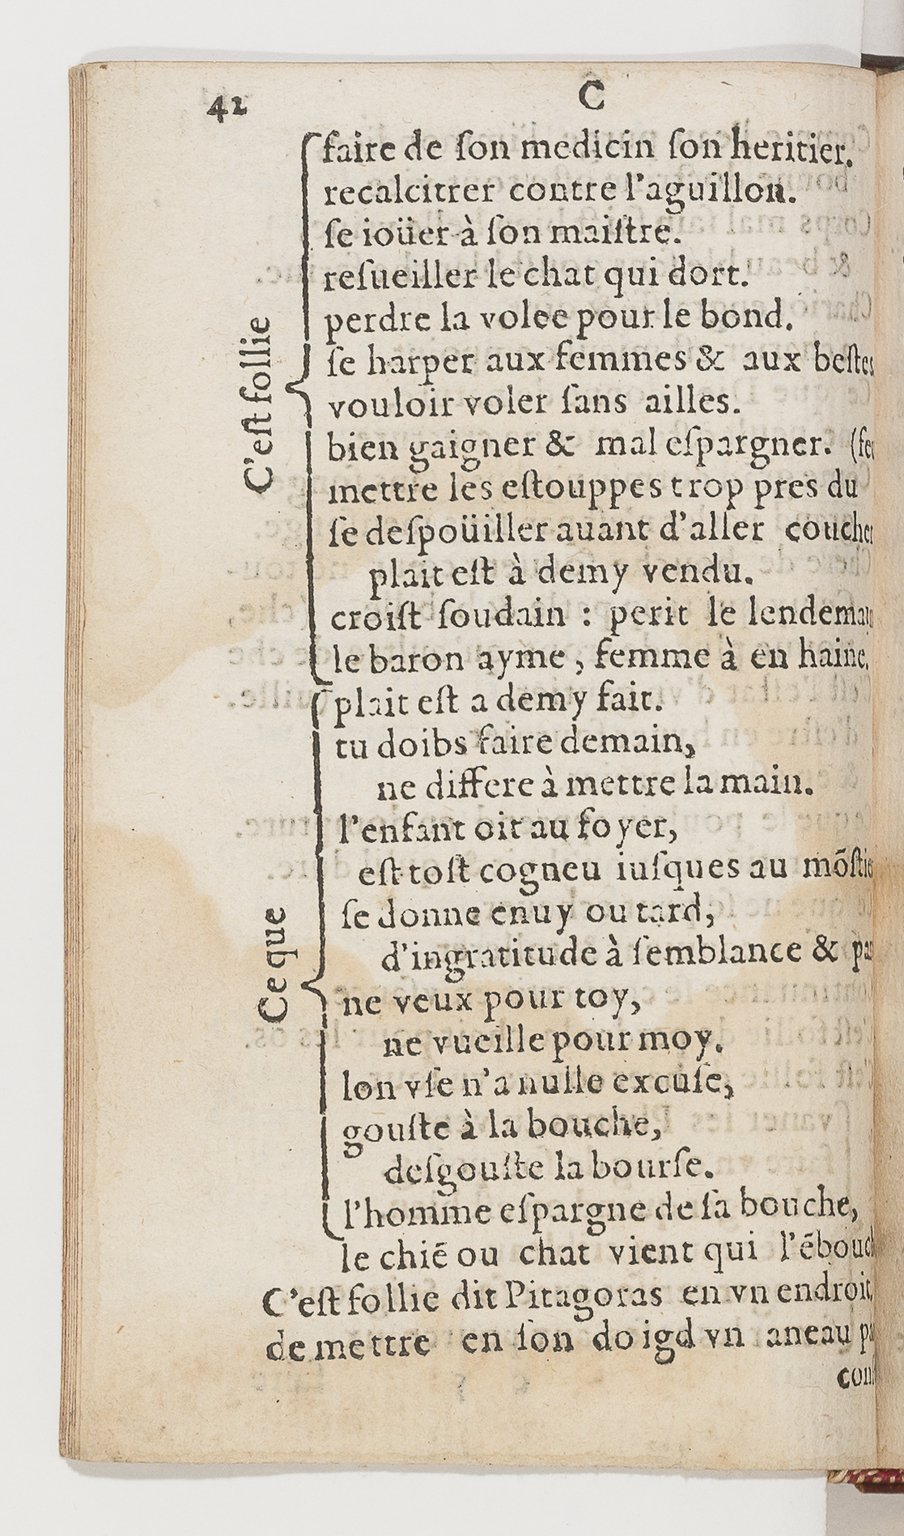 42
C
C'eſt follie
faire de ſon medicin ſon heritier.
recalcitrer contre l'aguillon.
ſe ioüer à ſon maiſtre.
reſueiller le chat qui dort.
perdre la volee pour le bond.
ſe harper aux femmes & aux beſtes
vouloir voler ſans ailles.
bien gaigner & mal eſpargner. (feu
mettre les eſtouppes trop pres du
ſe deſpoüiller auant d'aller coucher
plait eſt à demy vendu.
croiſt ſoudain : perit le lendemain
le baron ayme, femme à en haine.
Ce que
plait eſt a demy fait.
tu doibs faire demain,
ne differe à mettre la main.
l'enfant oit au foyer,
eſt toſt cogneu iuſques au mõſtie
ſe donne enuy ou tard,
d'ingratitude à ſemblance &
ne veux pour toy,
ne vueille pour moy.
lon vſe n'a nulle excuſe,
gouſte à la bouche,
deſgouſte la bourſe.
l'homme eſpargne de ſa bouche,
le chiẽ ou chat vient qui l'ẽbouc
C'eſt follie dit Pitagoras en vn endroit,
de mettre en ſon doigd vn aneau